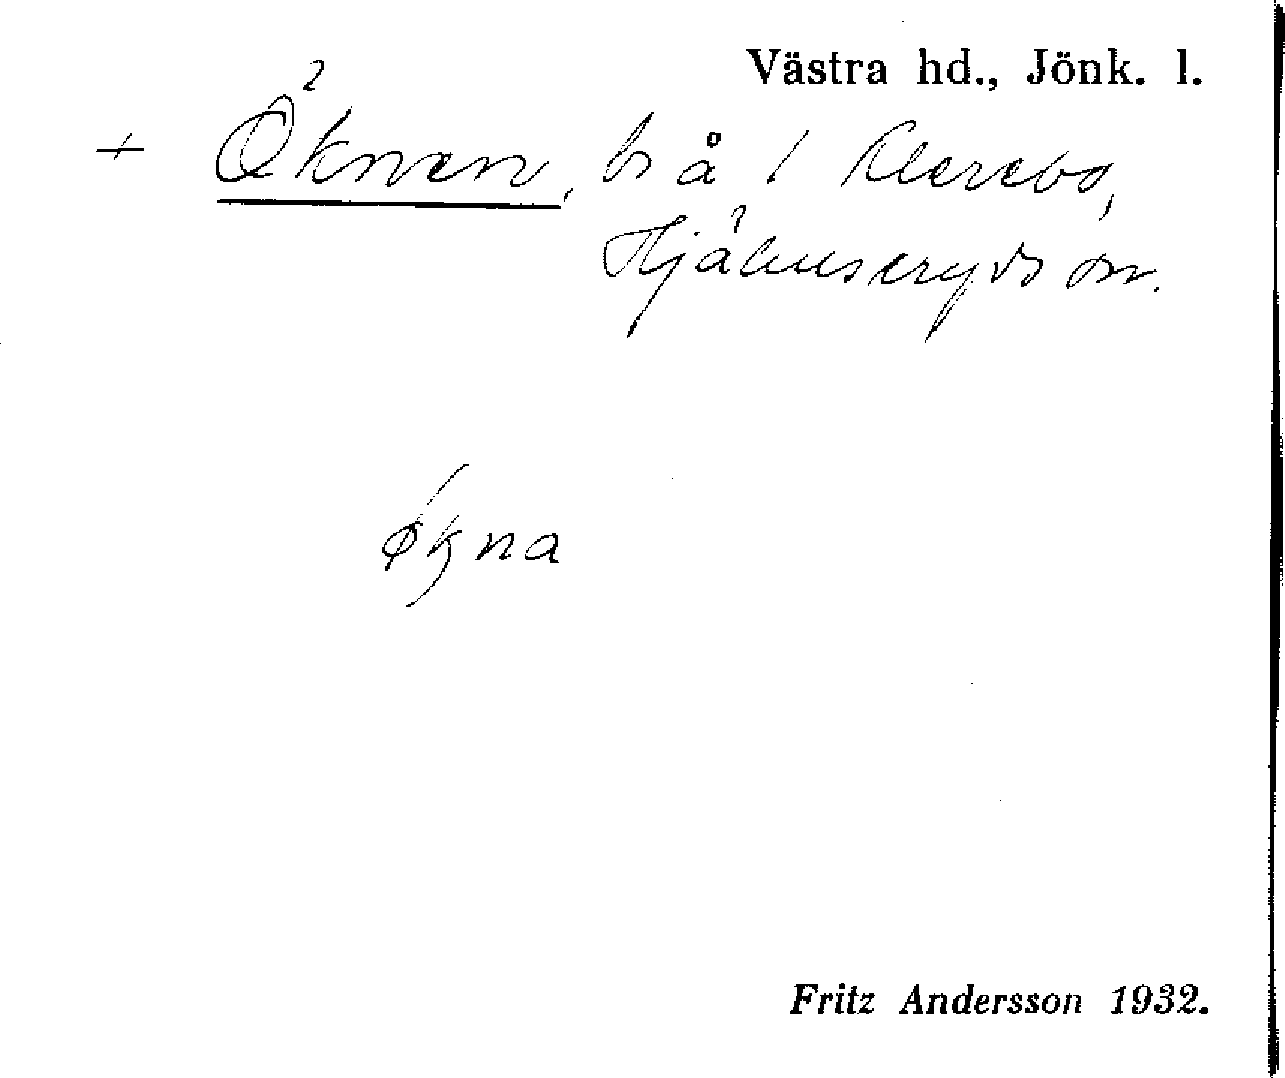 Västra hd., Jönk. l.
+ Öknen, br å / Klerebo,
Hjälmseryds sn.
økna
Fritz Andersson 1932.